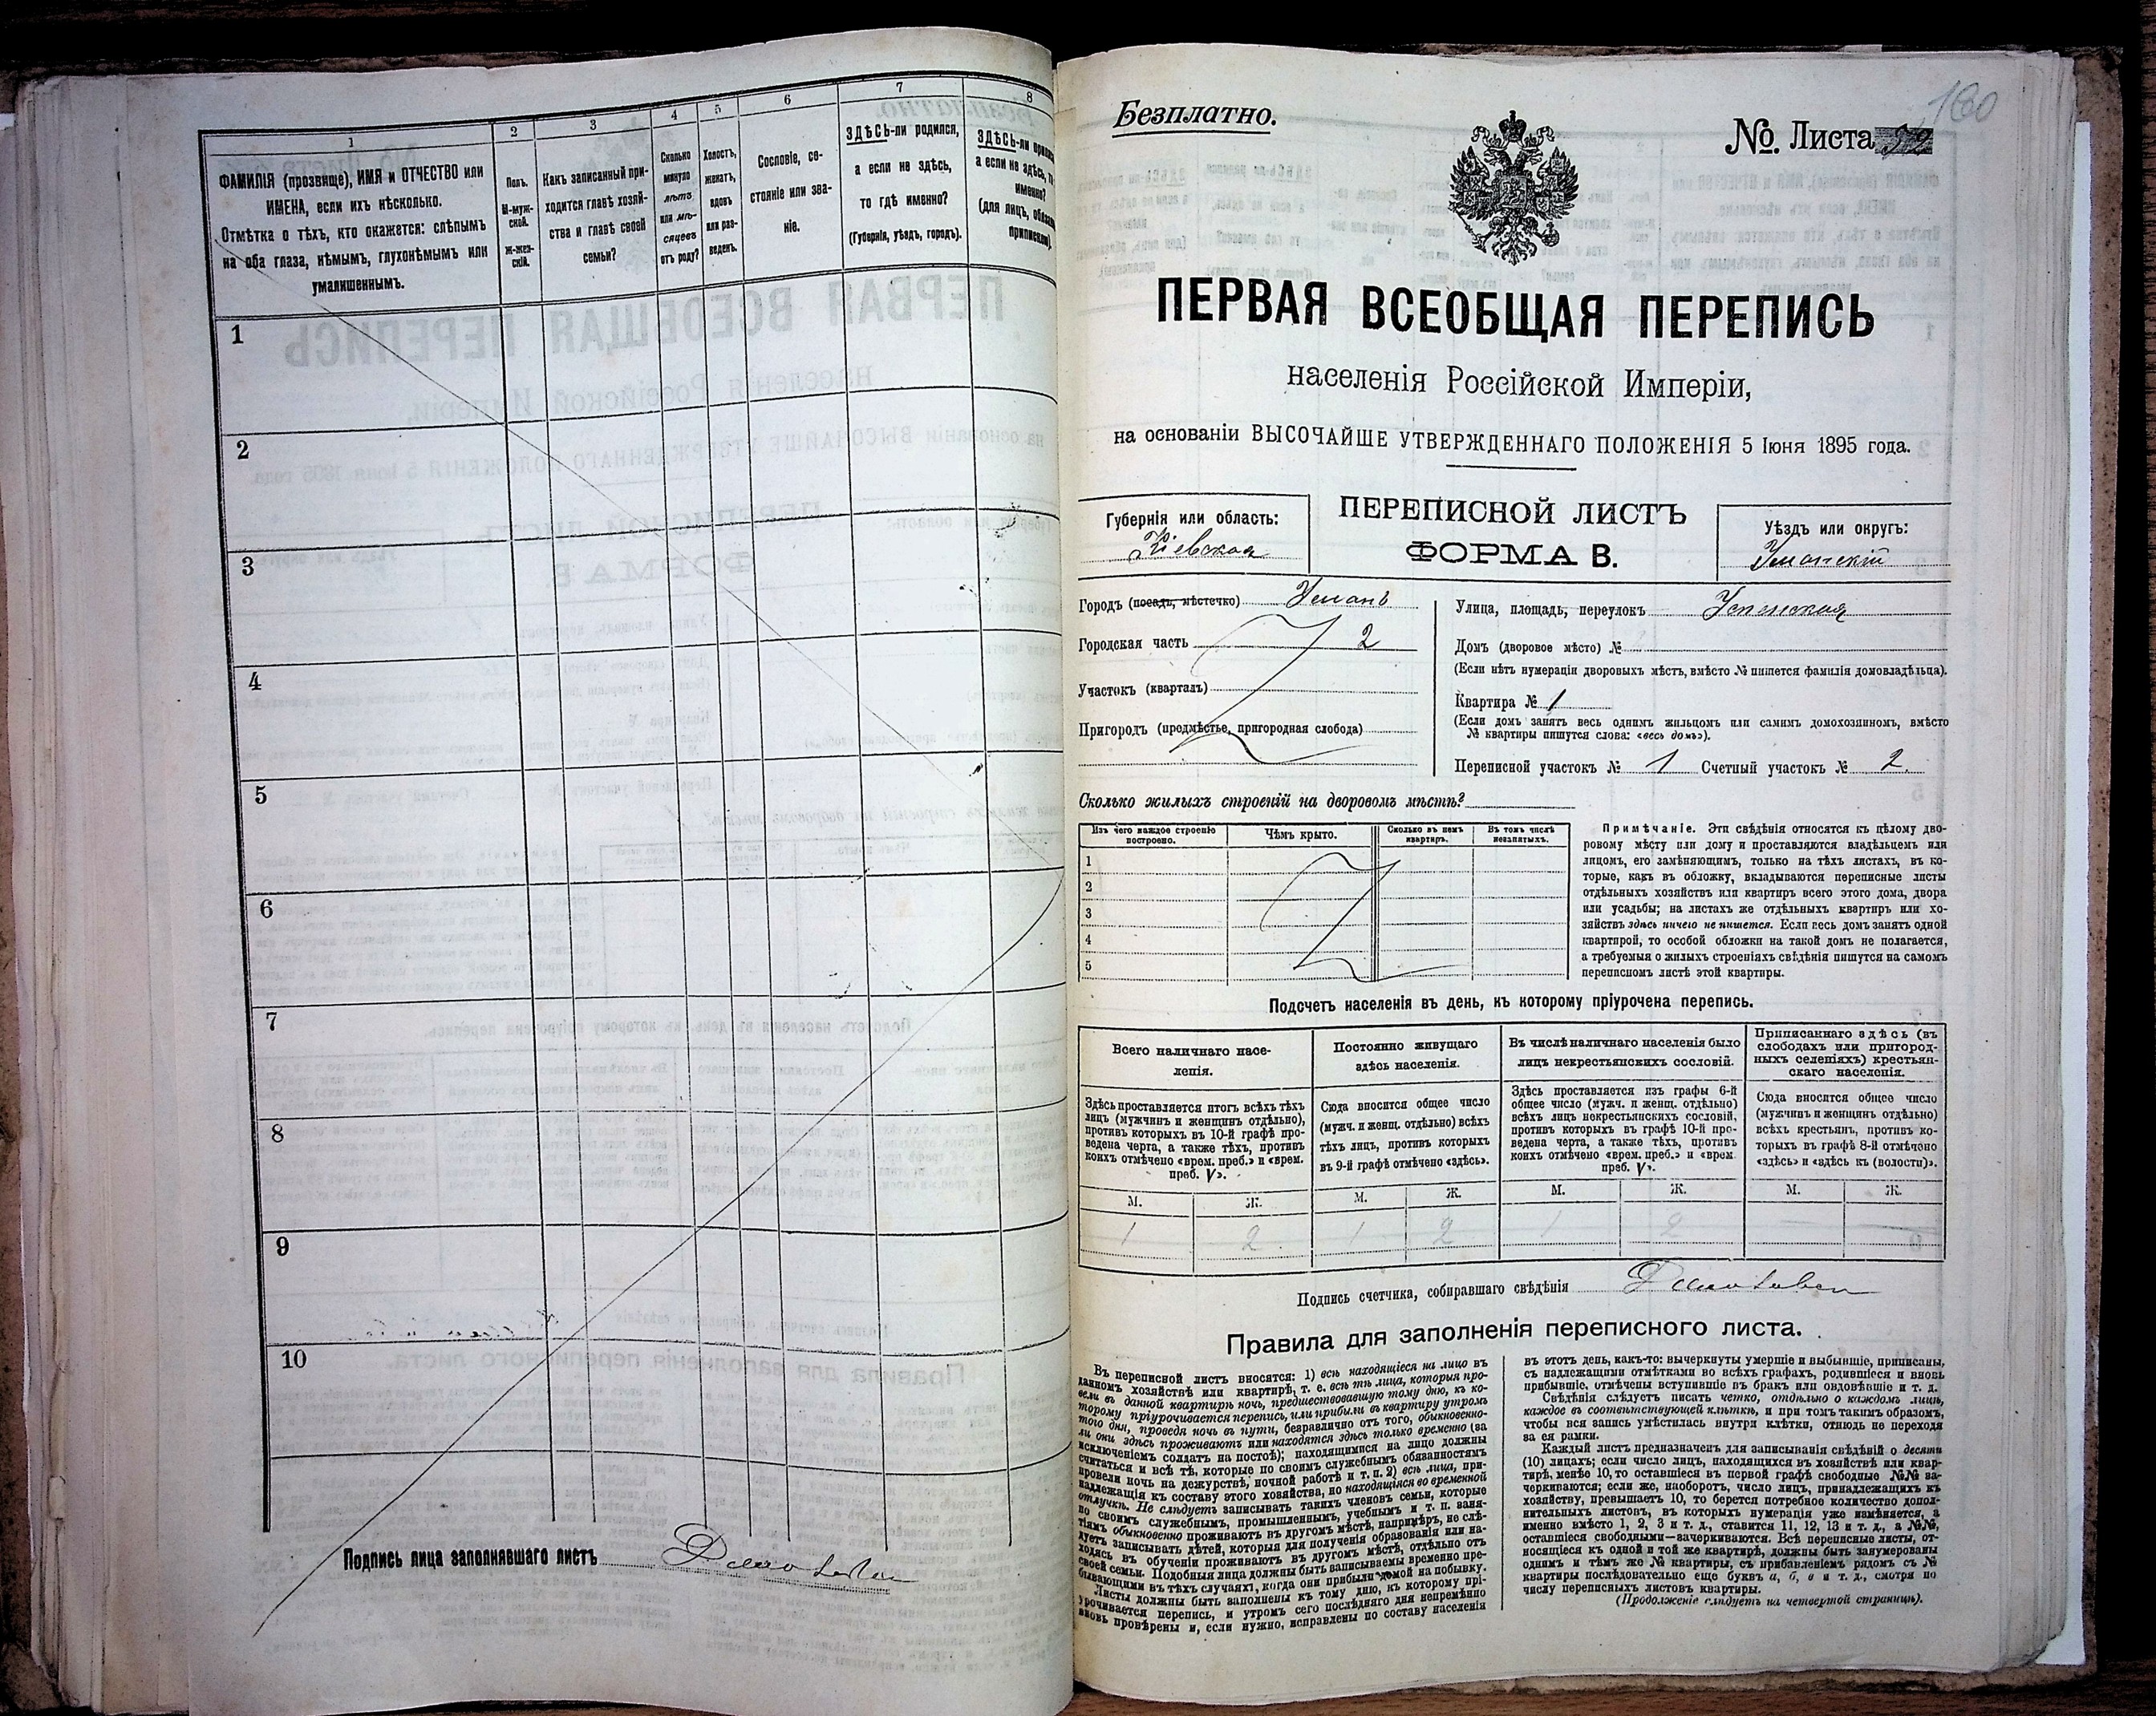 1
2
3
4
5
6
7
8
ФАМИЛІЯ (прозвище), ИМЯ и ОТЧЕСТВО или
ИМЕНА, если ихъ нѣсколько.
Отмѣтка о тѣхъ, кто окажется: слѣпымъ
на оба глаза, нѣмымъ, глухонѣмымъ или
умалишеннымъ.
Полъ.
М-муж-
ской.
Ж-жен-
скій.
Какъ записанный при-
ходится главѣ хозяй-
ства и главѣ своей
семьи?
Сколько
минуло
лѣтъ
или мѣ-
сяцевъ
отъ роду?
Холостъ,
женатъ,
вдовъ
или раз-
веденъ.
Сословіе, со-
стояніе или зва-
ніе.
ЗДѢСЬ-ли родился,
а если не здѣсь,
то гдѣ именно?
(Губернія, уѣздъ, городъ).
ЗДѢСЬ-ли
а если не здѣсь,
именно?
(для лицъ,
1
2
3
4
5
6
7
8
9
10
Подпись лица заполнявшаго листъ
Безплатно.
160
№. Листа
ПЕРВАЯ ВСЕОБЩАЯ ПЕРЕПИСЬ
населенія Россійской Имперіи,
на основаніи ВЫСОЧАЙШЕ УТВЕРЖДЕННАГО ПОЛОЖЕНІЯ 5 Іюня 1895 года.
Губернія или область:
Кіевская
ПЕРЕПИСНОЙ ЛИСТЪ
ФОРМА В.
Уѣздъ или округъ:
Уманскій
Городъ (посадъ, мѣстечко) Умань
Городская часть 2
Участокъ (кварталъ)
Пригородъ (предмѣстье, пригородная слобода)
Улица, площадь, переулокъ Успенская
Домъ (дворовое мѣсто) №
(Если нѣтъ нумераціи дворовыхъ мѣстъ, вмѣсто № пишется фамилія домовладѣльца).
Квартира № 1
(Если домъ занятъ весь однимъ жильцомъ или самимъ домохозяиномъ, вмѣсто
№ квартиры пишутся слова: «весь домъ»).
Переписной участокъ № 1 Счетный участокъ № 2.
Сколько жилыхъ строеній на дворовомъ мѣстѣ?
Изъ чего каждое строеніе
построено.
Чѣмъ крыто.
Сколько въ немъ
квартиръ.
Въ томъ числѣ
незанятыхъ.
1
2
3
4
5
Примѣчаніе. Эти свѣдѣнія относятся къ цѣлому дво-
ровому мѣсту или дому и проставляются владѣльцемъ или
лицомъ, его замѣняющимъ, только на тѣхъ листахъ, въ ко-
торые, какъ въ обложку, вкладываются переписные листы
отдѣльныхъ хозяйствъ или квартиръ всего этого дома, двора
или усадьбы; на листахъ же отдѣльныхъ квартиръ или хо-
зяйствъ здѣсь ничего не пишется. Если весь домъ занятъ одной
квартирой, то особой обложки на такой домъ не полагается,
а требуемыя о жилыхъ строеніяхъ свѣдѣнія пишутся на самомъ
переписномъ листѣ этой квартиры.
Подсчетъ населенія въ день, къ которому пріурочена перепись.
Всего наличнаго насе-
ленія.
Здѣсь проставляется итогъ всѣхъ тѣхъ
лицъ (мужчинъ и женщинъ отдѣльно),
противъ которыхъ въ 10-й графѣ про-
ведена черта, а также тѣхъ, противъ
коихъ отмѣчено «врем. преб.» и «врем.
преб. V».
Постоянно живущаго
здѣсь населенія.
Сюда вносится общее число
(мужч. и женщ. отдѣльно) всѣхъ
тѣхъ лицъ, противъ которыхъ
въ 9-й графѣ отмѣчено «здѣсь».
Въ числѣ наличнаго населенія было
лицъ некрестьянскихъ сословій.
Здѣсь проставляется изъ графы 6-й
общее число (мужч. и женщ. отдѣльно)
всѣхъ лицъ некрестьянскихъ сословій,
противъ которыхъ въ графѣ 10-й про-
ведена черта, а также тѣхъ, противъ
коихъ отмѣчено «врем. преб.» и «врем.
преб. V».
Приписаннаго здѣсь (въ
слободахъ или пригород-
ныхъ селеніяхъ) крестьян-
скаго населенія.
Сюда вносится общее число
(мужчинъ и женщинъ отдѣльно)
всѣхъ крестьянъ, противъ ко-
торыхъ въ графѣ 8-й отмѣчено
«здѣсь» и «здѣсь къ (волости)».
М. Ж. М. Ж. М. Ж. М. Ж.
1 2 1 2 1 2 —
Подпись счетчика, собиравшаго свѣдѣнія
Правила для заполненія переписного листа.
Въ переписной листъ вносятся: 1) всѣ находящіеся на лицо въ
данномъ хозяйствѣ или квартирѣ, т. е. всѣ тѣ лица, которыя про-
вели въ данной квартирѣ ночь, предшествовавшую тому дню, къ ко-
торому пріурочивается перепись, или прибыли въ квартиру утромъ
того дня, проведя ночь въ пути, безразлично отъ того, обыкновенно-
ли они здѣсь проживаютъ или находятся здѣсь только временно (за
исключеніемъ солдатъ на постоѣ); находящимися на лицо должны
считаться и всѣ тѣ, которые по своимъ служебнымъ обязанностямъ
провели ночь на дежурствѣ, ночной работѣ и т. п. 2) всѣ лица, при-
надлежащія къ составу этого хозяйства, но находящіяся во временной
отлучкѣ. Не слѣдуетъ записывать такихъ членовъ семьи, которые
по своимъ служебнымъ, промышленнымъ, учебнымъ и т. п. заня-
тіямъ обыкновенно проживаютъ въ другомъ мѣстѣ, напримѣръ, не слѣ-
дуетъ записывать дѣтей, которыя для полученія образованія или на-
ходясь въ обученіи проживаютъ въ другомъ мѣстѣ, отдѣльно отъ
своей семьи. Подобныя лица должны быть записываемы временно пре-
бывающими въ тѣхъ случаяхъ, когда они прибыли домой на побывку.
Листы должны быть заполнены къ тому дню, къ которому прі-
урочивается перепись, и утромъ сего послѣдняго дня непремѣнно
вновь провѣрены и, если нужно, исправлены по составу населенія
въ этотъ день, какъ-то: вычеркнуты умершіе и выбывшіе, приписаны,
съ надлежащими отмѣтками во всѣхъ графахъ, родившіеся и вновь
прибывшіе, отмѣчены вступившіе въ бракъ или овдовѣвшіе и т. д.
Свѣдѣнія слѣдуетъ писать четко, отдѣльно о каждомъ лицѣ,
каждое въ соотвѣтствующей клѣткѣ, и при томъ такимъ образомъ,
чтобы вся запись умѣстилась внутри клѣтки, отнюдь не переходя
за ея рамки.
Каждый листъ предназначенъ для записыванія свѣдѣній о десяти
(10) лицахъ; если число лицъ, находящихся въ хозяйствѣ или квар-
тирѣ, менѣе 10, то оставшіеся въ первой графѣ свободные №№ за-
черкиваются; если же, наоборотъ, число лицъ, принадлежащихъ къ
хозяйству, превышаетъ 10, то берется потребное количество допол-
нительныхъ листовъ, въ которыхъ нумерація уже измѣняется, а
именно вмѣсто 1, 2, 3 и т. д., ставится 11, 12, 13 и т. д., а №№,
оставшіеся свободными—зачеркиваются. Всѣ переписные листы, от-
носящіеся къ одной и той же квартирѣ, должны быть занумерованы
однимъ и тѣмъ же № квартиры, съ прибавленіемъ рядомъ съ №
квартиры послѣдовательно еще буквъ а, б, в и т. д., смотря по
числу переписныхъ листовъ квартиры.
(Продолженіе слѣдуетъ на четвертой страницѣ).